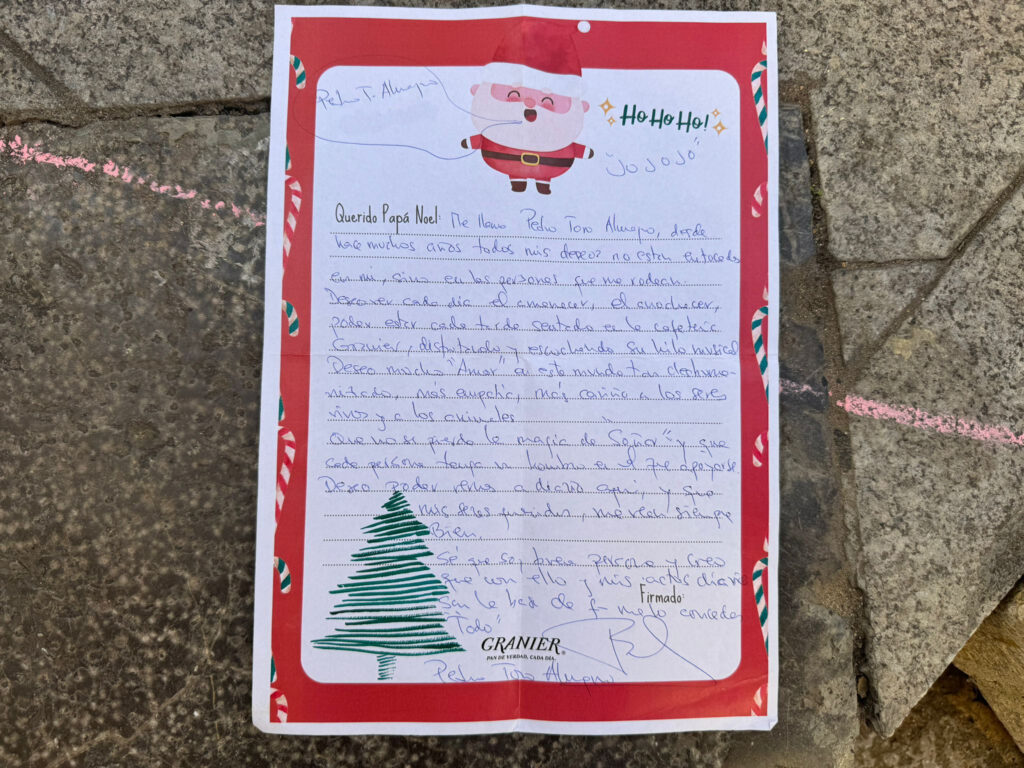 Pedro T. Almagro
HO HO HO!
"JO JO JO"
Querido Papá Noel: Me llamo Pedro Toro Almagro, desde
hace muchos años todos mis deseos no estan enfocados
en mi, sino en las personas que me rodean.
Deseo ver cada dia el amanecer, el anochecer,
poder estar cada tarde sentado en la cafeteria
Granier, disfrutando y escuchando su hilo musical
Deseo mucho "Amor" en este mundo tan deshuma-
nitado, más empatia, más cariño a los seres
vivos y a los animales
Que no se pierda la magia de Soñar" y que
cada persona tenga un hombro en el que apoyarse
Deseo poder veros a diario aqui, y que
mis seres queridos, me vean siempre
Bien.
Sé que soy buena persona y creo
que con ello y mis actos diarios
Firmado:
me lo conceda
"Todo"
GRANIER®
PAN DE VERDAD, CADA DÍA.
Pedro Toro Almagro